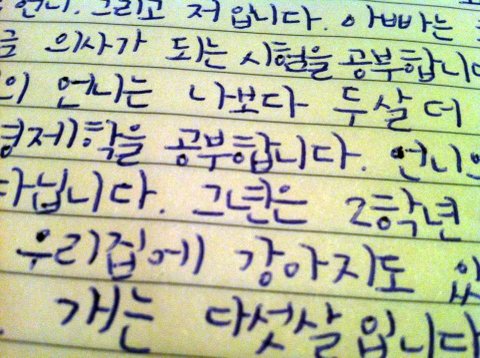 언니, 그리고 저 입니다. 아빠는
금 의사가 되는 시험을 공부합니다
의 언니는 나보다 두살 더
경제학을 공부합니다. 언니
다닙니다. 그년은 2학년
우리집에 강아지도 있
개는 다섯살입니다